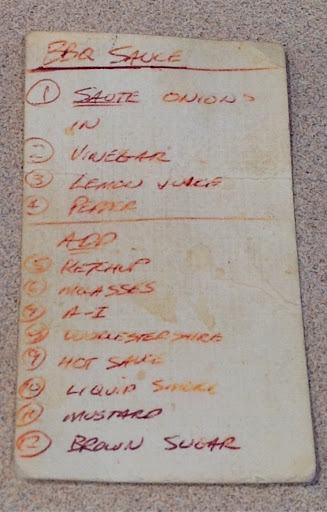 BBQ SAUCE
1 SAUTE ONIONS
IN
2 VINEGAR
3 LEMON JUICE
4 PEPPER
ADD
5 KETCHUP
6 MOLASSES
7 A-1
8 WORCESTERSHIRE
9 HOT SAUCE
10 LIQUID SMOKE
11 MUSTARD
12 BROWN SUGAR